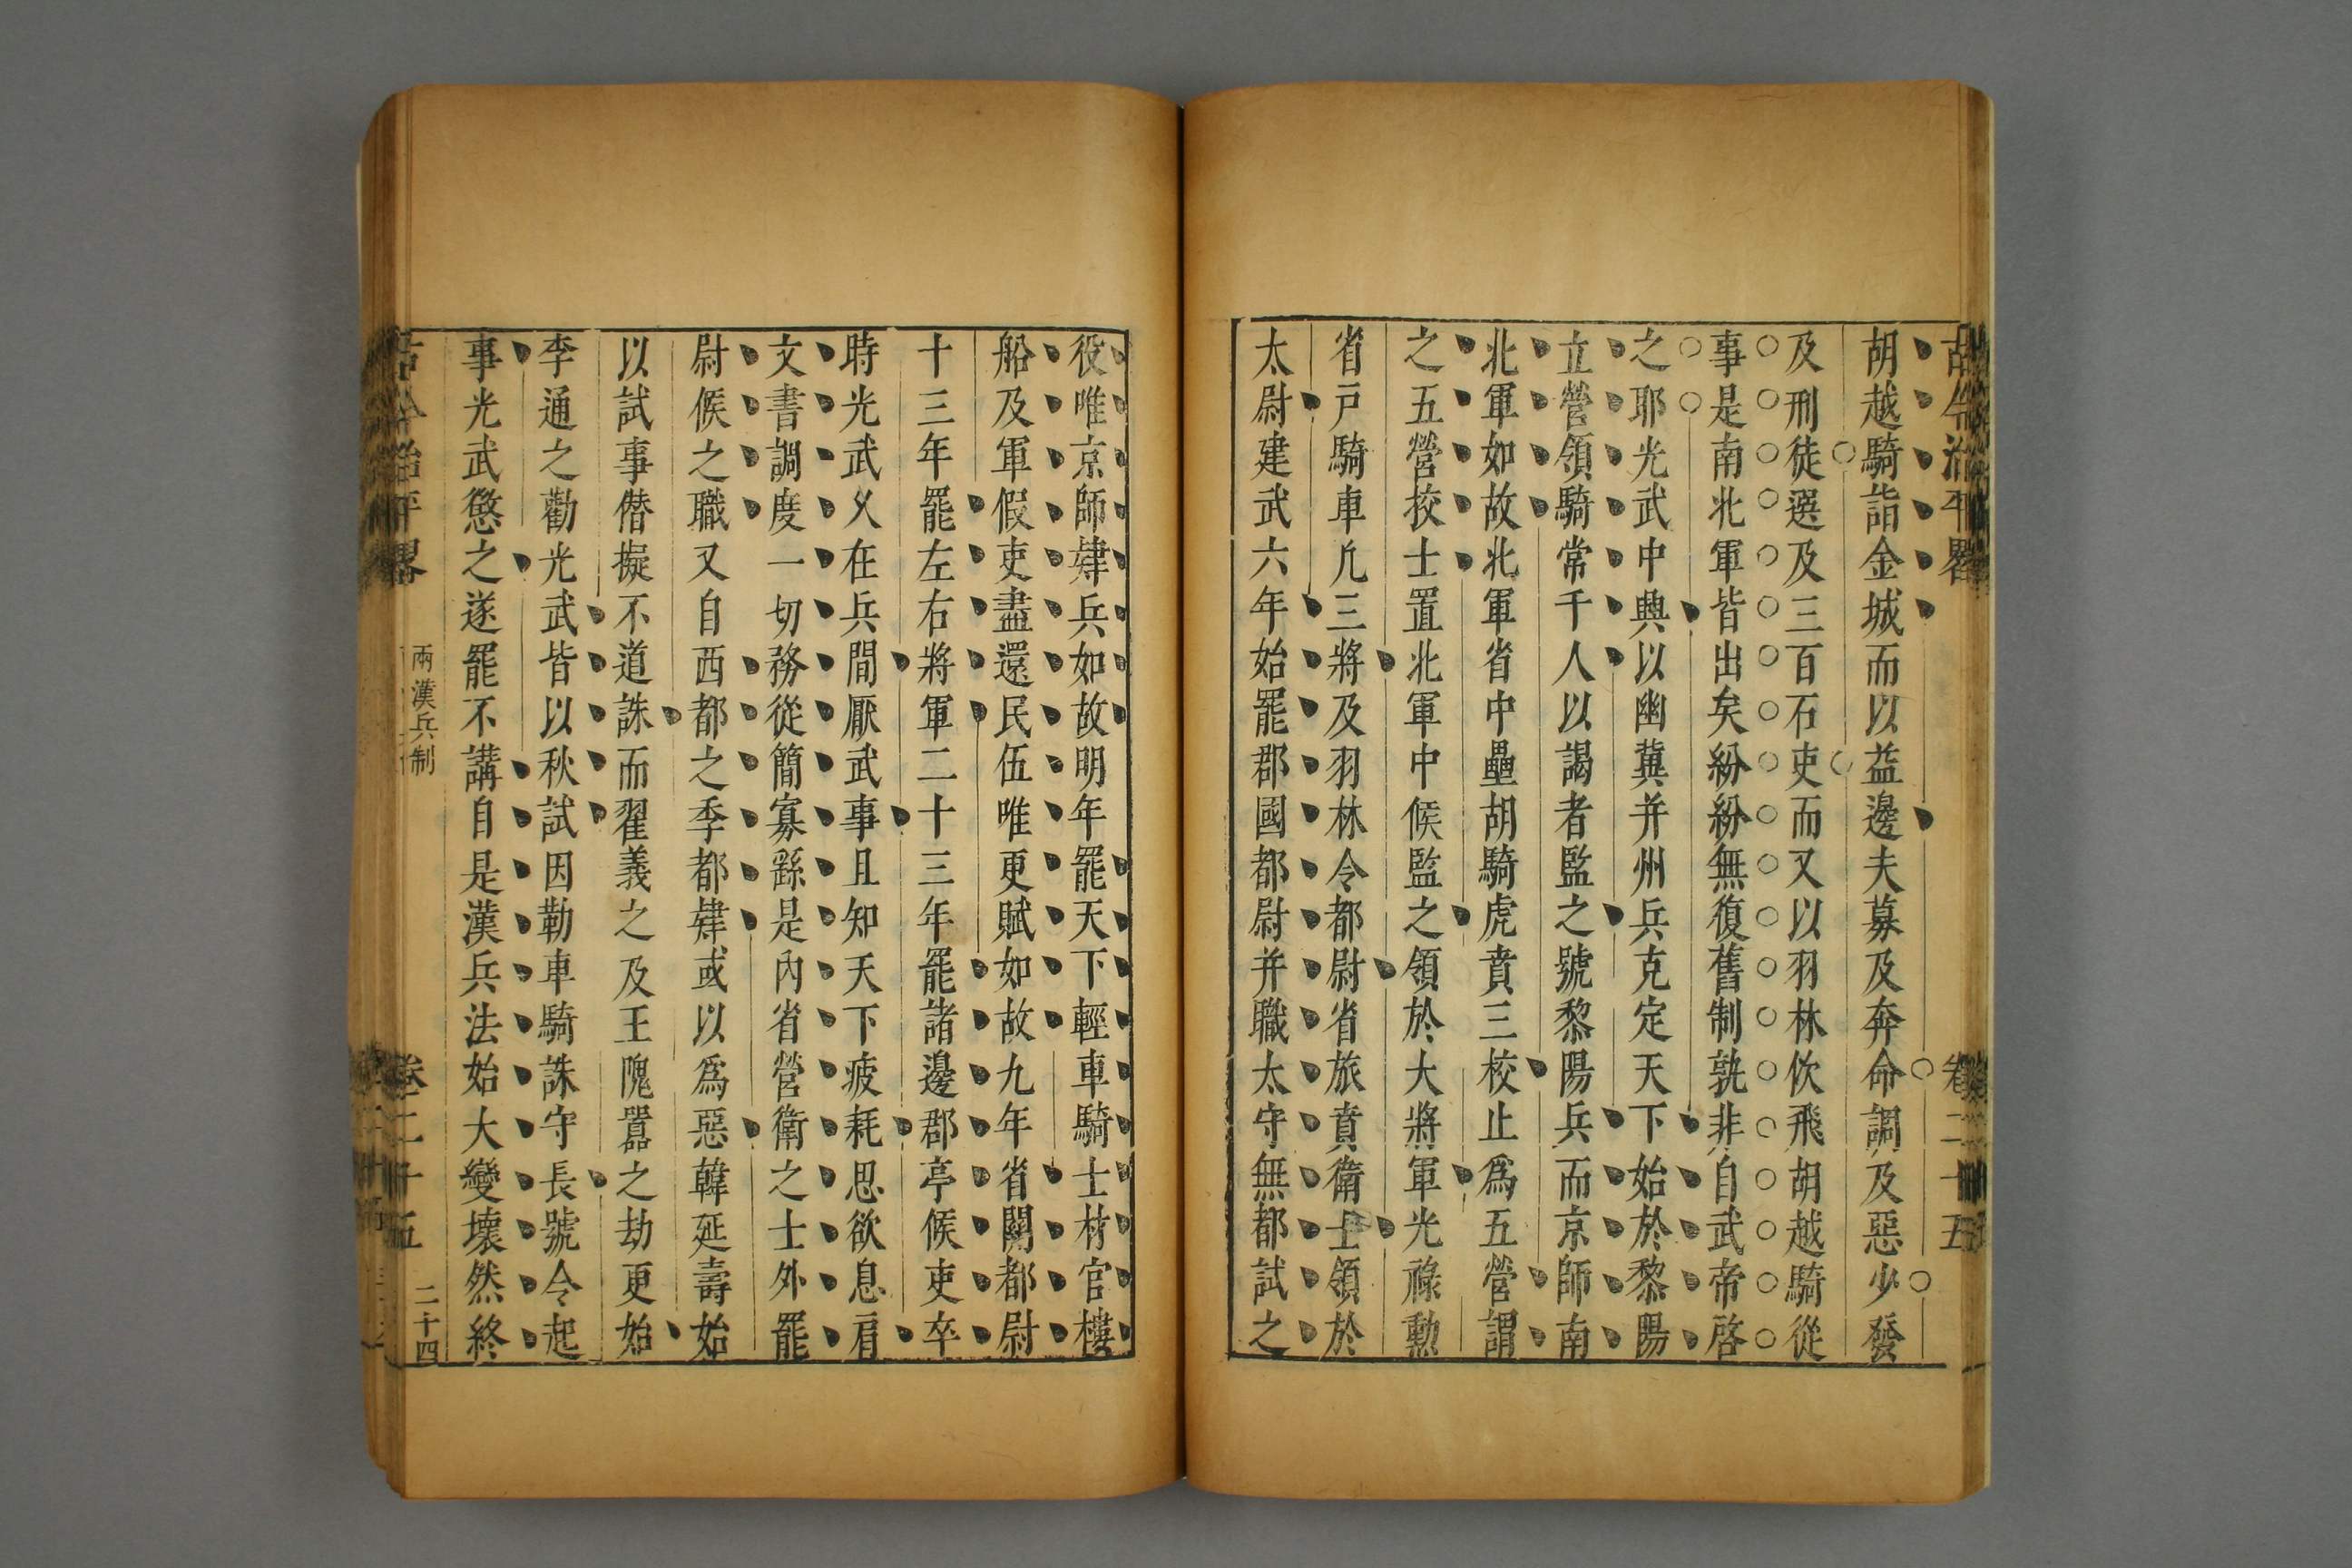 古今治平畧 卷二十五
胡越騎詣金城而以益邊夫募及奔命調及惡少發
及刑徒選及三百石吏而又以羽林佽飛胡越騎從
事是南北軍皆出矣紛紛無復舊制孰非自武帝啓
之耶光武中興以幽冀并州兵克定天下始於黎陽
立營領騎常千人以謁者監之號黎陽兵而京師南
北軍如故北軍省中壘胡騎虎賁三校止爲五營謂
之五營校士置北軍中候監之領於大將軍光祿勳
省戶騎車凢三將及羽林令都尉省旅賁衛士領於
太尉建武六年始罷郡國都尉并職太守無都試之
役唯京師肄兵如故明年罷天下輕車騎士材官樓
船及軍假吏盡還民伍唯更賦如故九年省關都尉
十三年罷左右將軍二十三年罷諸邊郡亭候吏卒
時光武乆在兵間厭武事且知天下疲耗思欲息肩
文書調度一切務從簡寡繇是內省營衛之士外罷
尉候之職又自西都之季都肄或以爲惡韓延壽始
以試事僭擬不道誅而翟義之及王隗囂之劫更始
李通之勸光武皆以秋試因勒車騎誅守長號令起
事光武懲之遂罷不講自是漢兵法始大變壞然終
古今治平畧 兩漢兵制 卷二十五 二十四